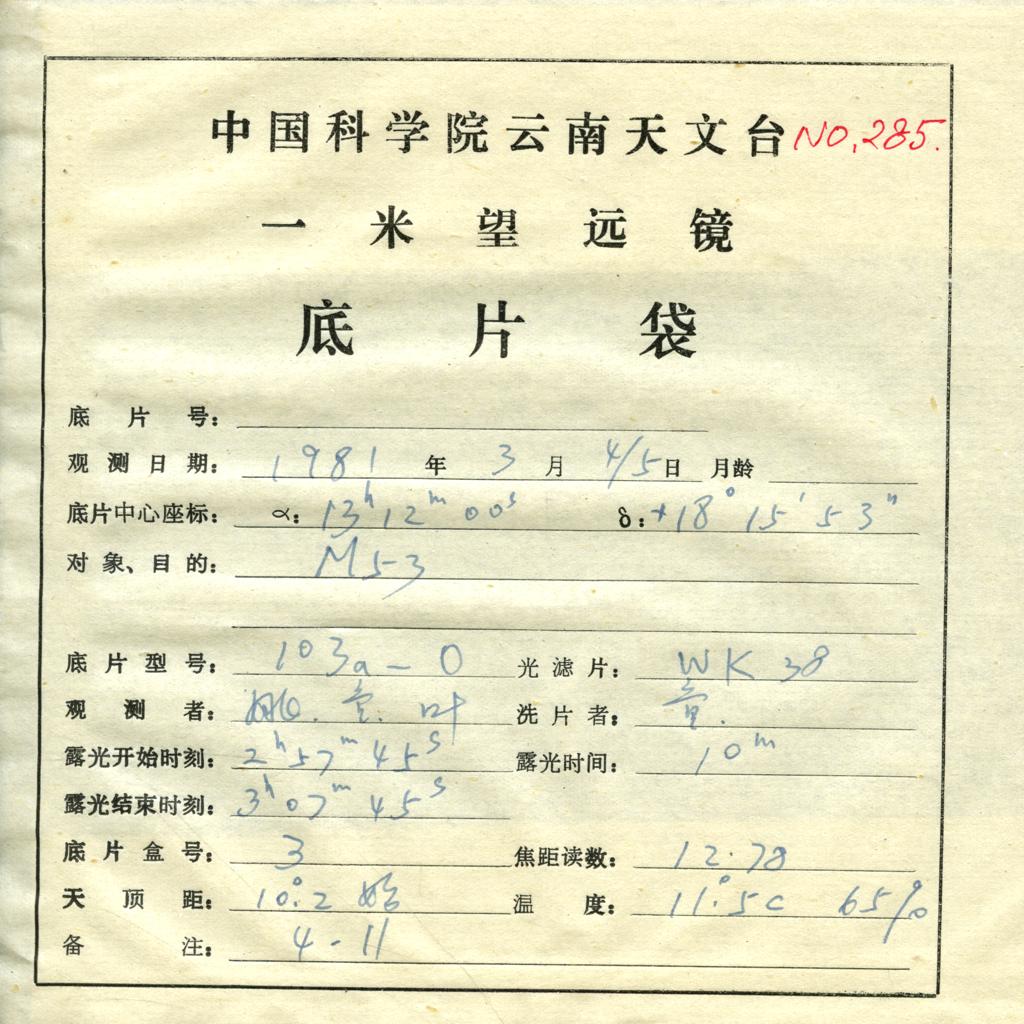 中国科学院云南天文台 NO.285.
一米望远镜
底片袋
底片号：
观测日期： 1981 年 3 月 4/5 日 月龄
底片中心座标： α： 13h 12m 00s δ：+18° 15′ 53″
对象、目的： M53
底片型号： 103a-O 光滤片： WK 38
观测者： 姚. 童. 叶 洗片者： 童.
露光开始时刻： 2h 57m 45s 露光时间： 10m
露光结束时刻： 3h 07m 45s
底片盒号： 3 焦距读数： 12.78
天顶距： 10°.2 始 温度： 11°.5C 65%
备注： 4-11